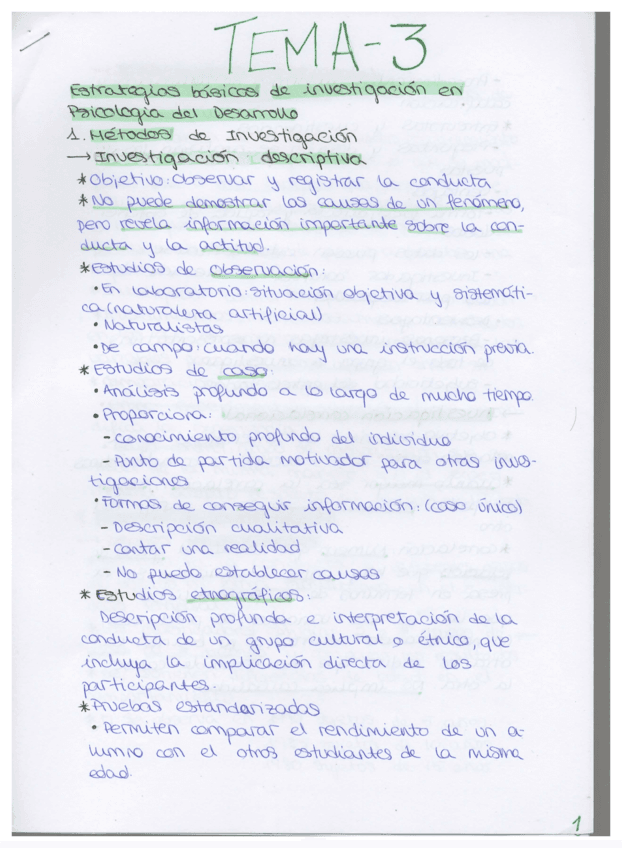 TEMA-3
Estrategias básicas de investigación en
Psicología del Desarrollo
1. Métodos de Investigación
→ Investigación descriptiva
* Objetivo: observar y registrar la conducta
* No puede demostrar las causas de un fenómeno,
pero revela información importante sobre la con-
ducta y la actitud.
* Estudios de observación:
• En laboratorio: situación objetiva y sistemáti-
ca (naturaleza artificial)
• Naturalistas
• De campo: cuando hay una instrucción previa.
* Estudios de caso:
• Análisis profundo a lo largo de mucho tiempo.
• Proporciona:
- Conocimiento profundo del individuo
- Punto de partida motivador para otras inves-
tigaciones
• Formas de conseguir información: (caso único)
- Descripción cualitativa
- Contar una realidad
- No puedo establecer causas
* Estudios etnográficos:
Descripción profunda e interpretación de la
conducta de un grupo cultural o étnico, que
incluya la implicación directa de los
participantes.
* Pruebas estandarizadas
• Permiten comparar el rendimiento de un a-
lumno con el otros estudiantes de la misma
edad.
1